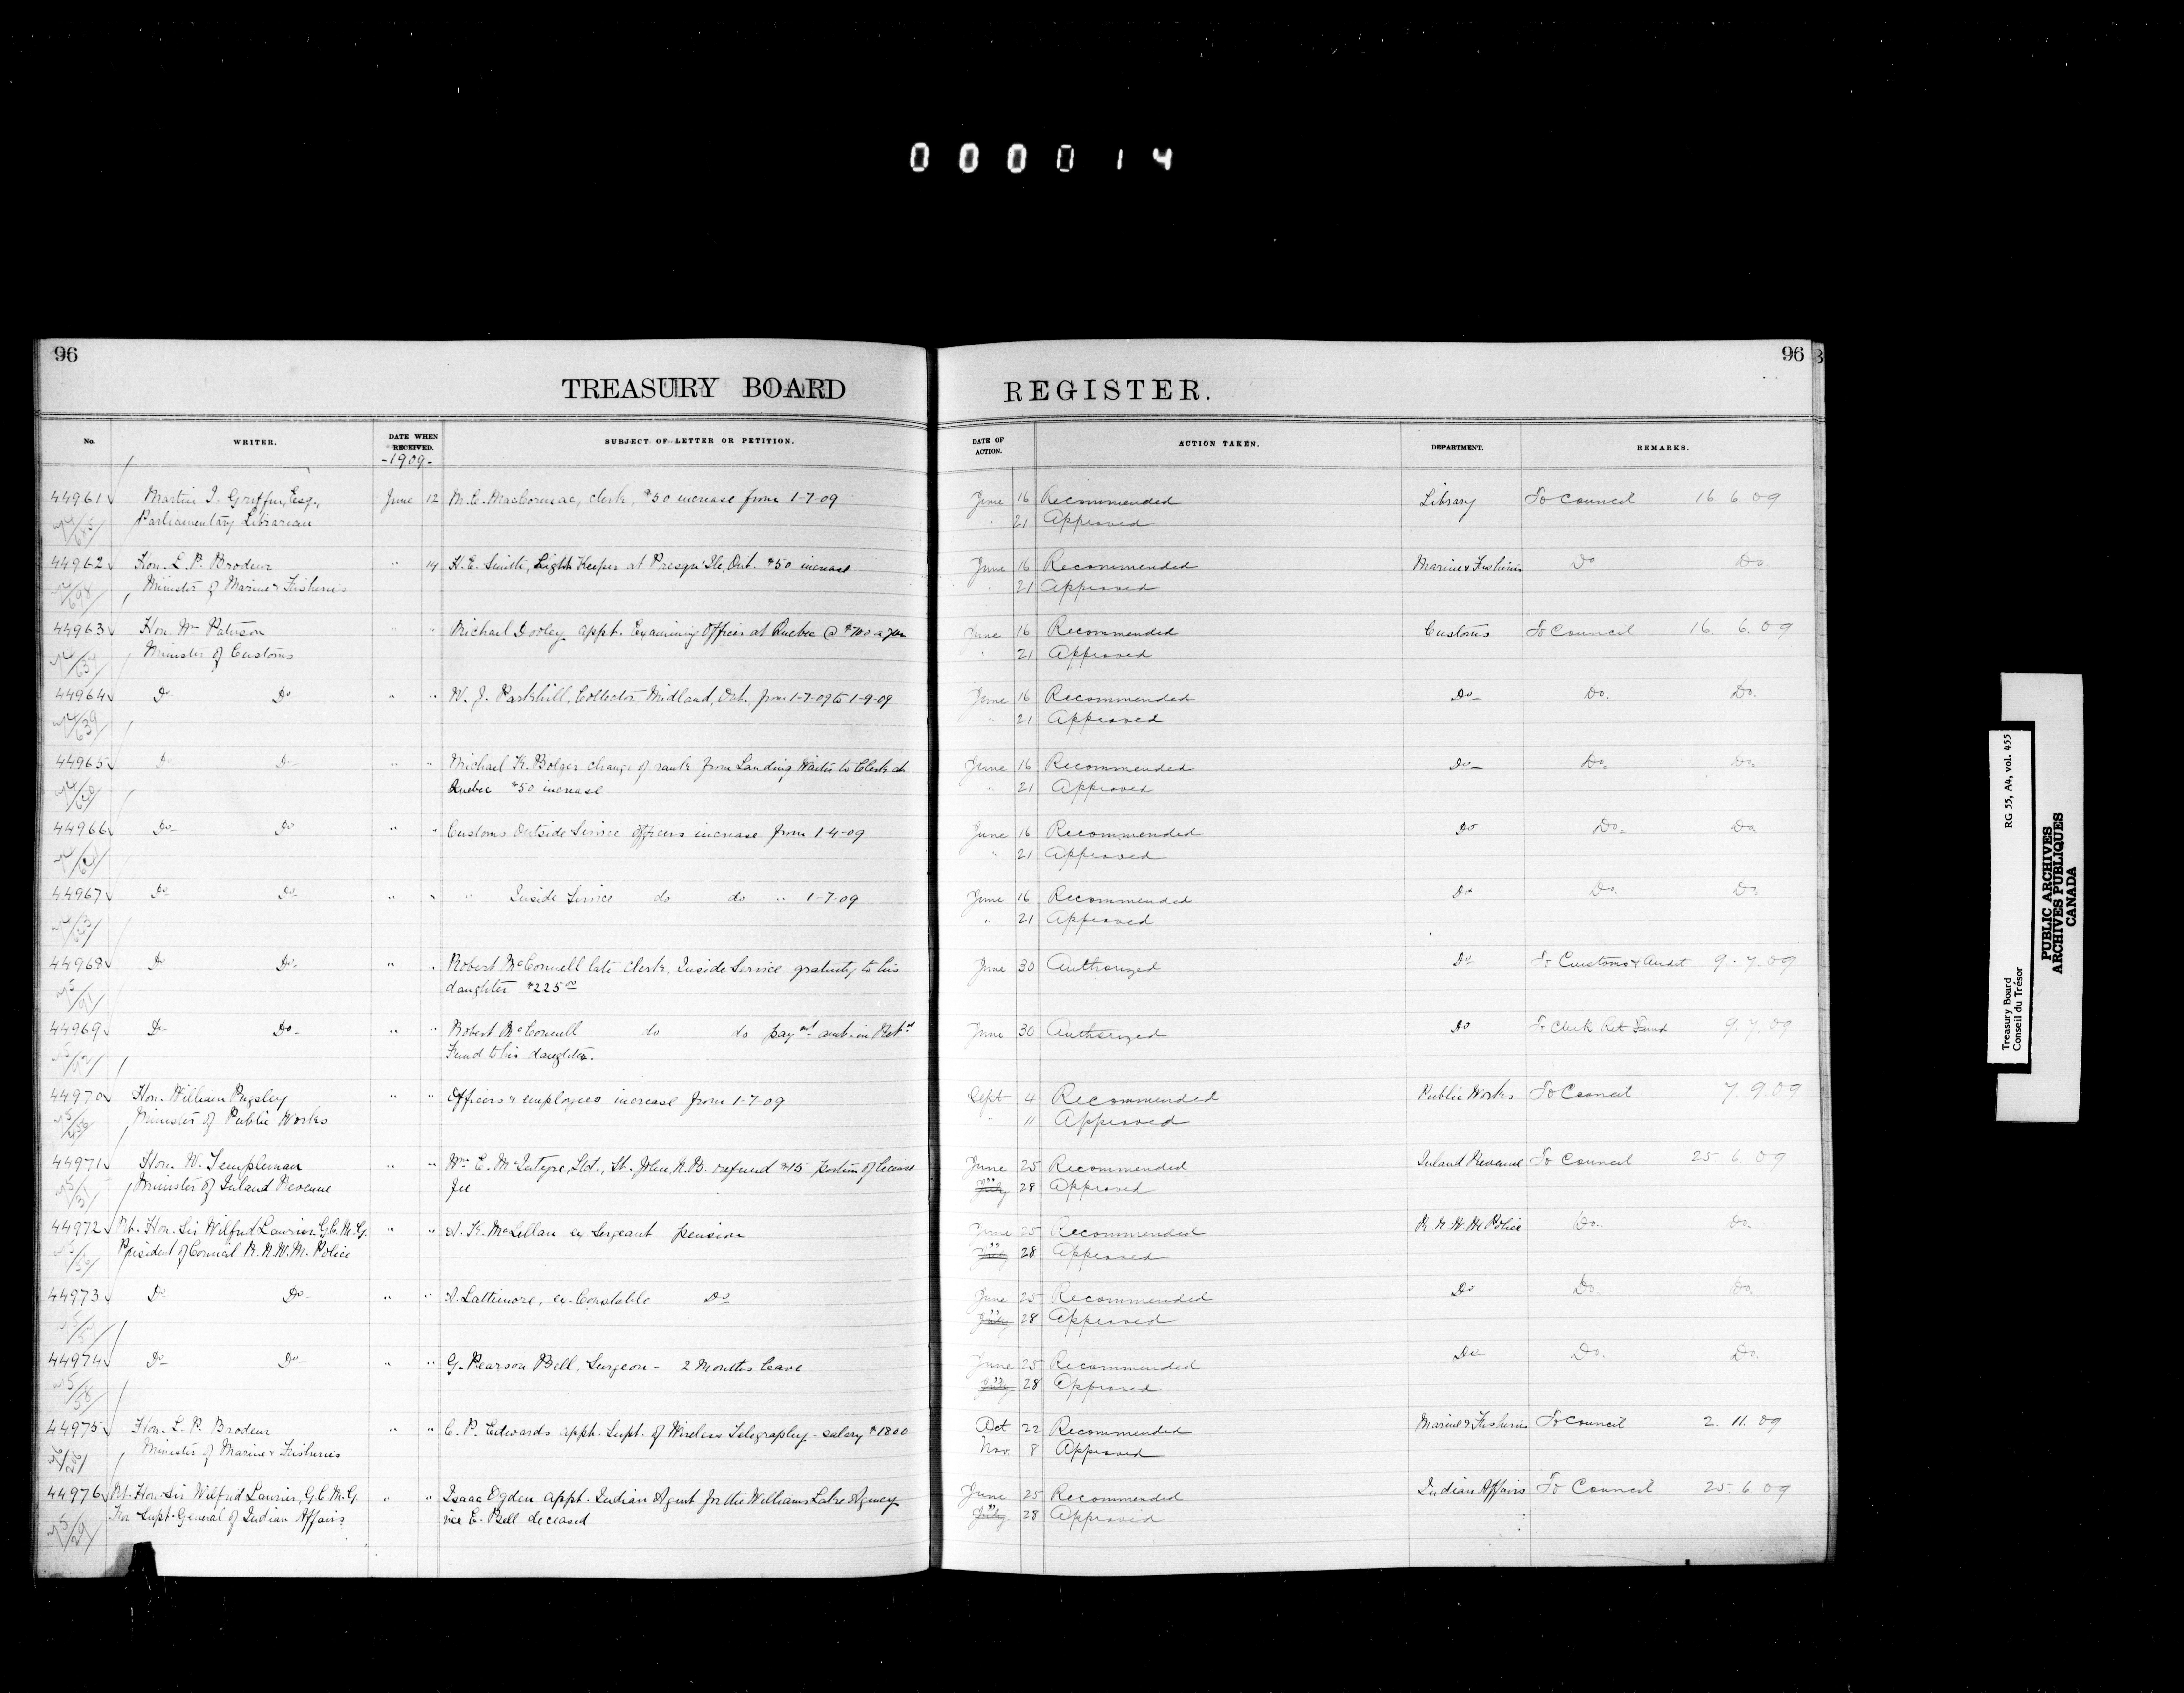 000014
96
TREASURY BOARD
REGISTER.
96
No.
WRITER.
DATE WHEN RECEIVED.
SUBJECT OF LETTER OR PETITION.
DATE OF ACTION.
ACTION TAKEN.
DEPARTMENT.
REMARKS.
-1909-
44961 Martin J. Griffin, Esq., June 12 M.C. MacCormac, clerk, $50 increase from 1-7-09 June 16 Recommended Library To Council 16 6 09
Parliamentary Librarian " 21 Approved
44962 Hon. L. P. Brodeur " 14 H.E. Smith, Light Keeper at Presqu'Ile, Ont. $50 increase June 16 Recommended Marine & Fisheries Do Do.
Minister of Marine & Fisheries " 21 Approved
44963 Hon. Wm Paterson " " Michael Dooley appt. Examining Officer at Quebec @ $700 a year June 16 Recommended Customs To Council 16. 6. 09
Minister of Customs " 21 Approved
44964 Do Do " " W. J. Parkhill, Collector Midland, Ont. from 1-7-09 to 1-9-09 June 16 Recommended Do Do. Do.
" 21 Approved
44965 Do Do " " Michael K. Bolger change of rank from Landing Waiter to Clerk at June 16 Recommended Do Do. Do.
Quebec $50 increase " 21 Approved
44966 Do Do " " Customs Outside Service officers increase from 1-4-09 June 16 Recommended Do Do. Do.
" 21 Approved
44967 Do Do " " " Inside Service do do " 1-7-09 June 16 Recommended Do Do. Do.
" 21 Approved
44968 Do Do " " Robert McConnell late Clerk, Inside Service gratuity to his June 30 Authorized Do To Customs & Audit 9. 7. 09
daughter $225 00
44969 Do Do " " Robert McConnell do do paymt amt. in Ret Do June 30 Authorized Do To Clerk Ret Fund 9. 7. 09
Fund to his daughter.
44970 Hon. William Pugsley " " Officers & employees increase from 1-7-09 Sept 4 Recommended Public Works To Council 7. 9 09
Minister of Public Works " 11 Approved
44971 Hon. W. Templeman " " Wm. E. McIntyre, Ltd., St. John, N.B. refund $15 portion of license June 25 Recommended Inland Revenue To Council 25 6 09
Minister of Inland Revenue fee July " 28 Approved
44972 Rt. Hon. Sir Wilfrid Laurier G.C.M.G. " " A. K. McLellan ex Sergeant pension June 25 Recommended R.N.W.M. Police Do. Do.
President of Council R.N.W.M. Police July " 28 Approved
44973 Do Do " " A. Lattimore, ex-Constable Do June 25 Recommended Do Do. Do.
July " 28 Approved
44974 Do Do " " G. Pearson Bell, Surgeon - 2 Months leave June 25 Recommended Do Do. Do.
July " 28 Approved
44975 Hon. L. P. Brodeur " " C. P. Edwards appt. Supt. of Wireless Telegraphy - salary $1800 Oct 22 Recommended Marine & Fisheries To Council 2. 11. 09
Minister of Marine & Fisheries Nov. 8 Approved
44976 Rt. Hon. Sir Wilfrid Laurier, G.C.M.G. " " Isaac Ogden appt. Indian Agent for the Williams Lake Agency June 25 Recommended Indian Affairs To Council 25. 6 09
For Supt-General of Indian Affairs vice E. Bell deceased July " 28 Approved
Treasury Board
Conseil du Trésor
RG 55, A4, vol. 455
PUBLIC ARCHIVES
ARCHIVES PUBLIQUES
CANADA